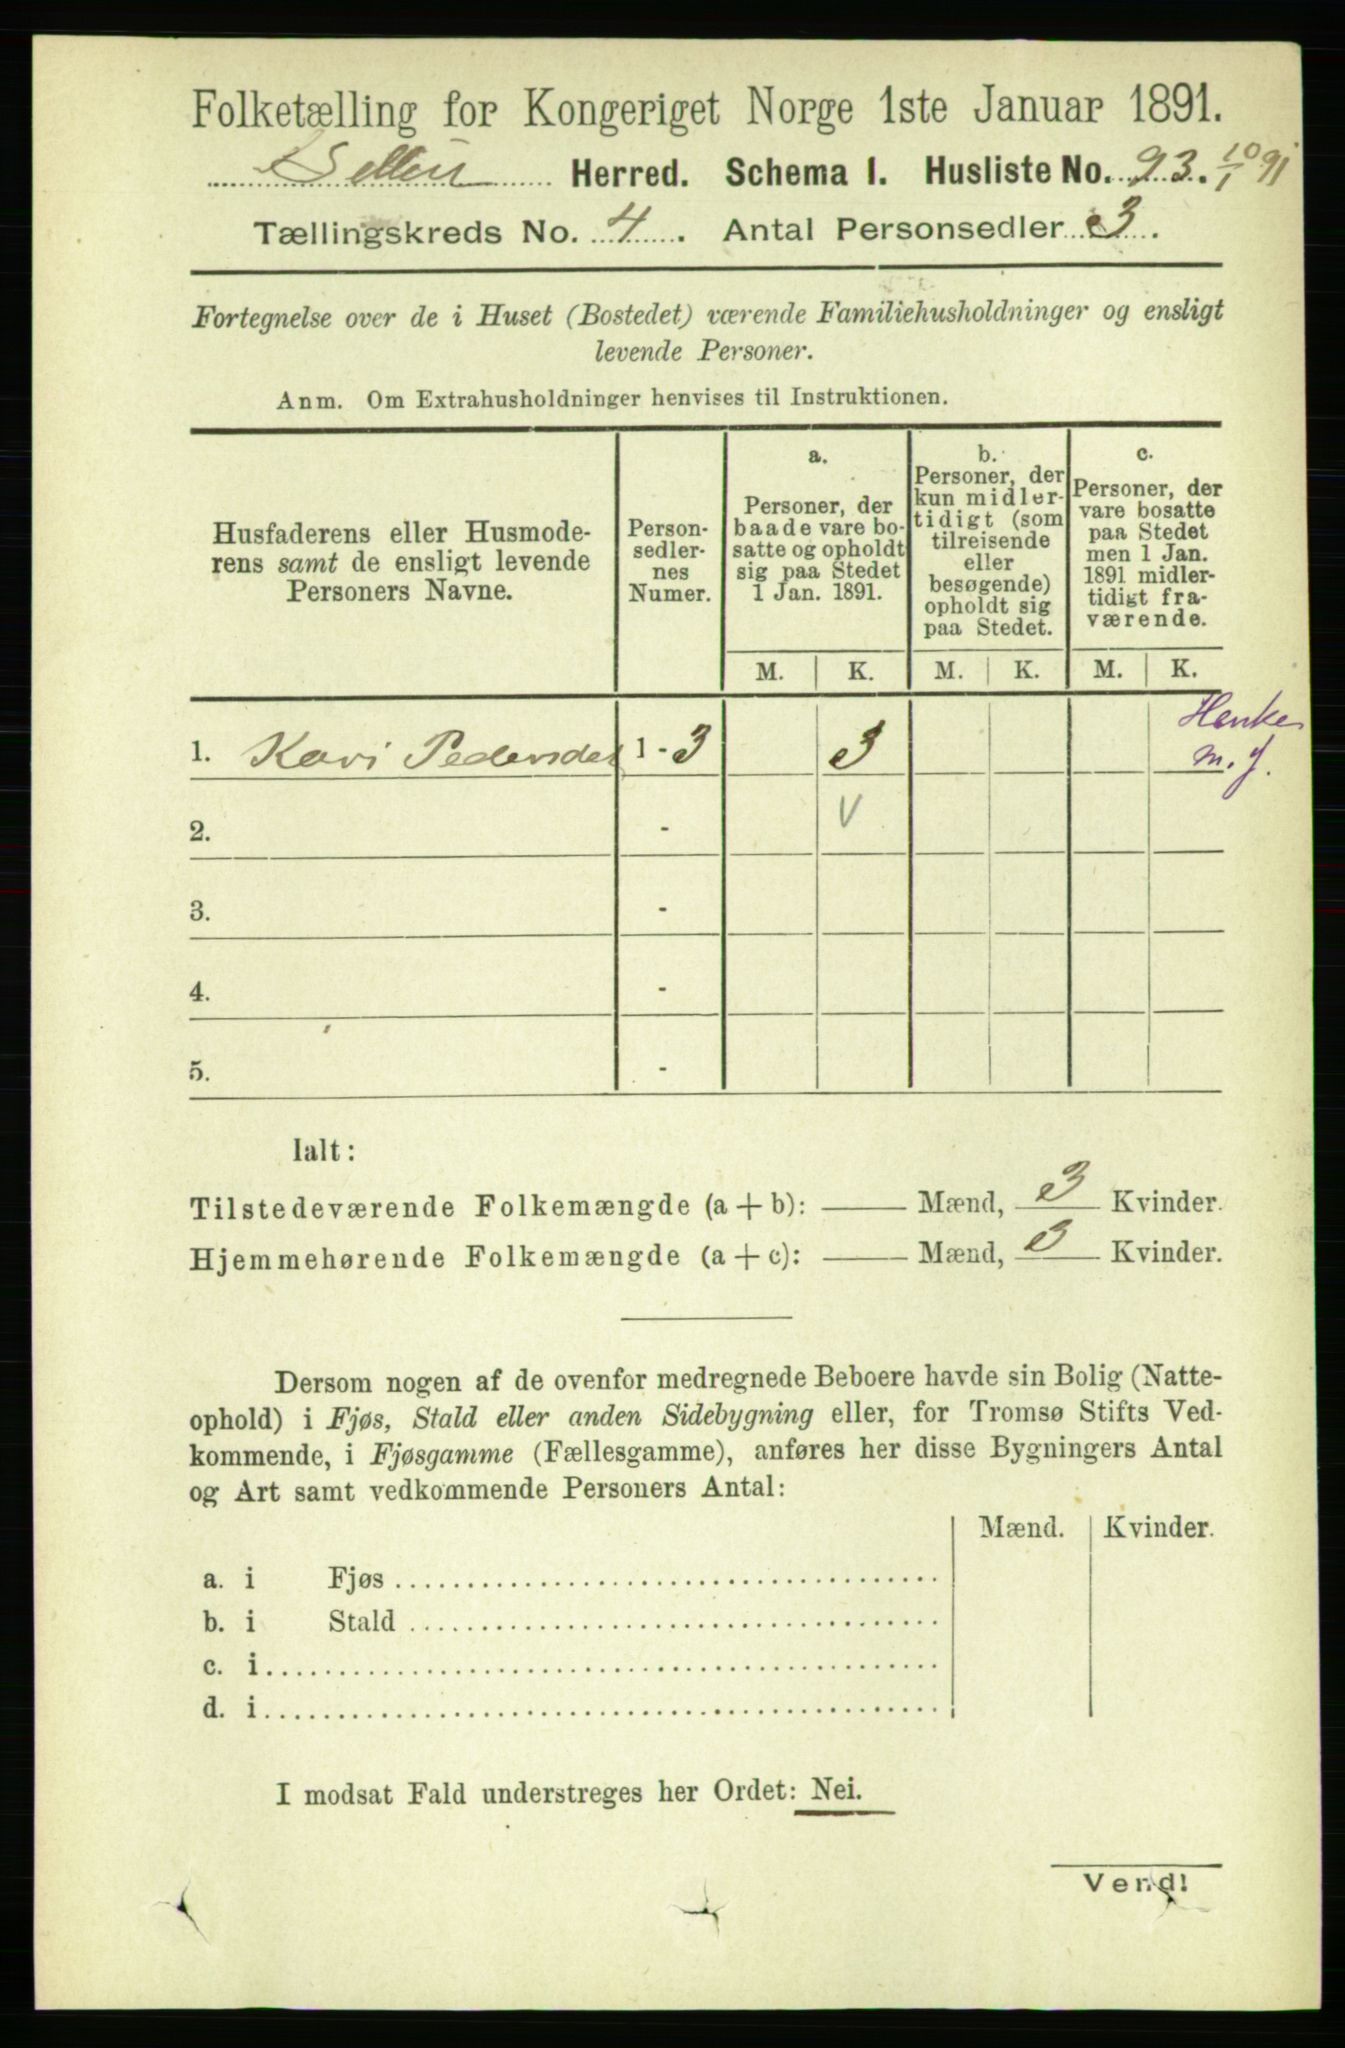 Folketælling for Kongeriget Norge 1ste Januar 1891.
Herred. Schema I. Husliste No. 93. 10/1 91
Tællingskreds No. 4. Antal Personsedler 3.
Fortegnelse over de i Huset (Bostedet) værende Familiehusholdninger og ensligt
levende Personer.
Anm. Om Extrahusholdninger henvises til Instruktionen.
Husfaderens eller Husmode-
rens samt de ensligt levende
Personers Navne.
Person-
sedler-
nes
Numer.
a.
Personer, der
baade vare bo-
satte og opholdt
sig paa Stedet
1 Jan. 1891.
b.
Personer, der
kun midler-
tidigt (som
tilreisende
eller
besøgende)
opholdt sig
paa Stedet.
c.
Personer, der
vare bosatte
paa Stedet
men 1 Jan.
1891 midler-
tidigt fra-
værende.
M. K. M. K. M. K.
Henke
m. J.
1. Kari Pedersdat 1 - 3 3
2. - V
3. -
4. -
5. -
Ialt:
Tilstedeværende Folkemængde (a + b): — Mænd, 3 Kvinder.
Hjemmehørende Folkemængde (a + c): — Mænd, 3 Kvinder.
Dersom nogen af de ovenfor medregnede Beboere havde sin Bolig (Natte-
ophold) i Fjøs, Stald eller anden Sidebygning eller, for Tromsø Stifts Ved-
kommende, i Fjøsgamme (Fællesgamme), anføres her disse Bygningers Antal
og Art samt vedkommende Personers Antal:
Mænd. Kvinder.
a. i Fjøs
b. i Stald
c. i
d. i
I modsat Fald understreges her Ordet: Nei.
Vend!